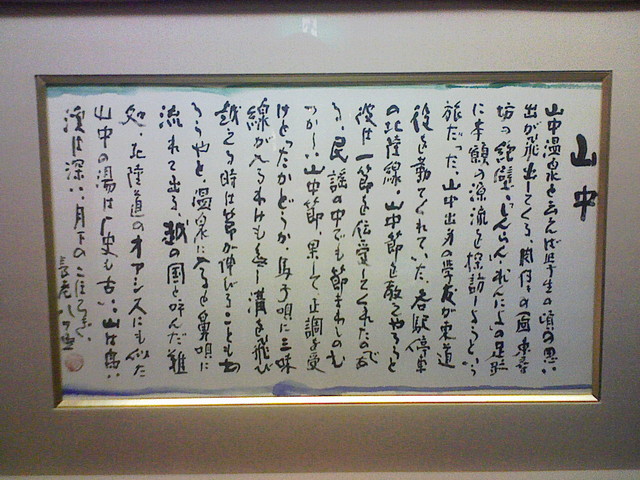 山中
山中温泉と云えば学生の頃の思い
出が飛出してくる 関付の 東尋
坊の絶壁、しんらん、れんにょの足跡
に本願の源流を探訪しようという
旅だった、山中出身の学友が東道
役を勤てくれていた、各駅停車
の北陸線、山中節を教てやろうと
彼は一節を伝受してくれたので
る、民謡の中でも節まわしのむ
つかしい山中節、果して正調を受
けとったかどうか、馬子唄に三味
線が入るわけもなし 溝を飛び
越える時は節が伸びることも
ろうやと、温泉に入ると鼻唄に
流れて出る、越の国と呼んだ難
処、北陸道のオアシスにも似た
山中の湯は歴史も古い、山は高い
渓は深い、月下の